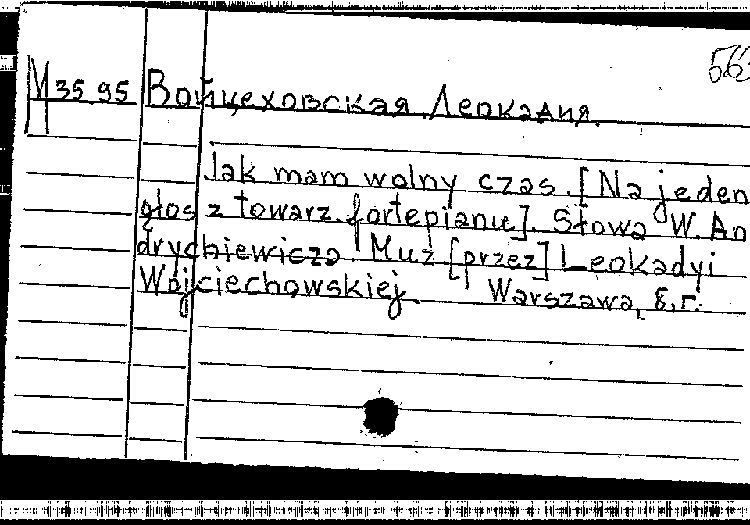 563
М 35 95 Войцеховская Леокадия.
Jak mam wolny czas. [Na jeden
głos z towarz. fortepianu]. Słowa W. An
drychiewicza. Muz [przez] Leokadyi
Wojciechowskiej. Warszawa, б.г.